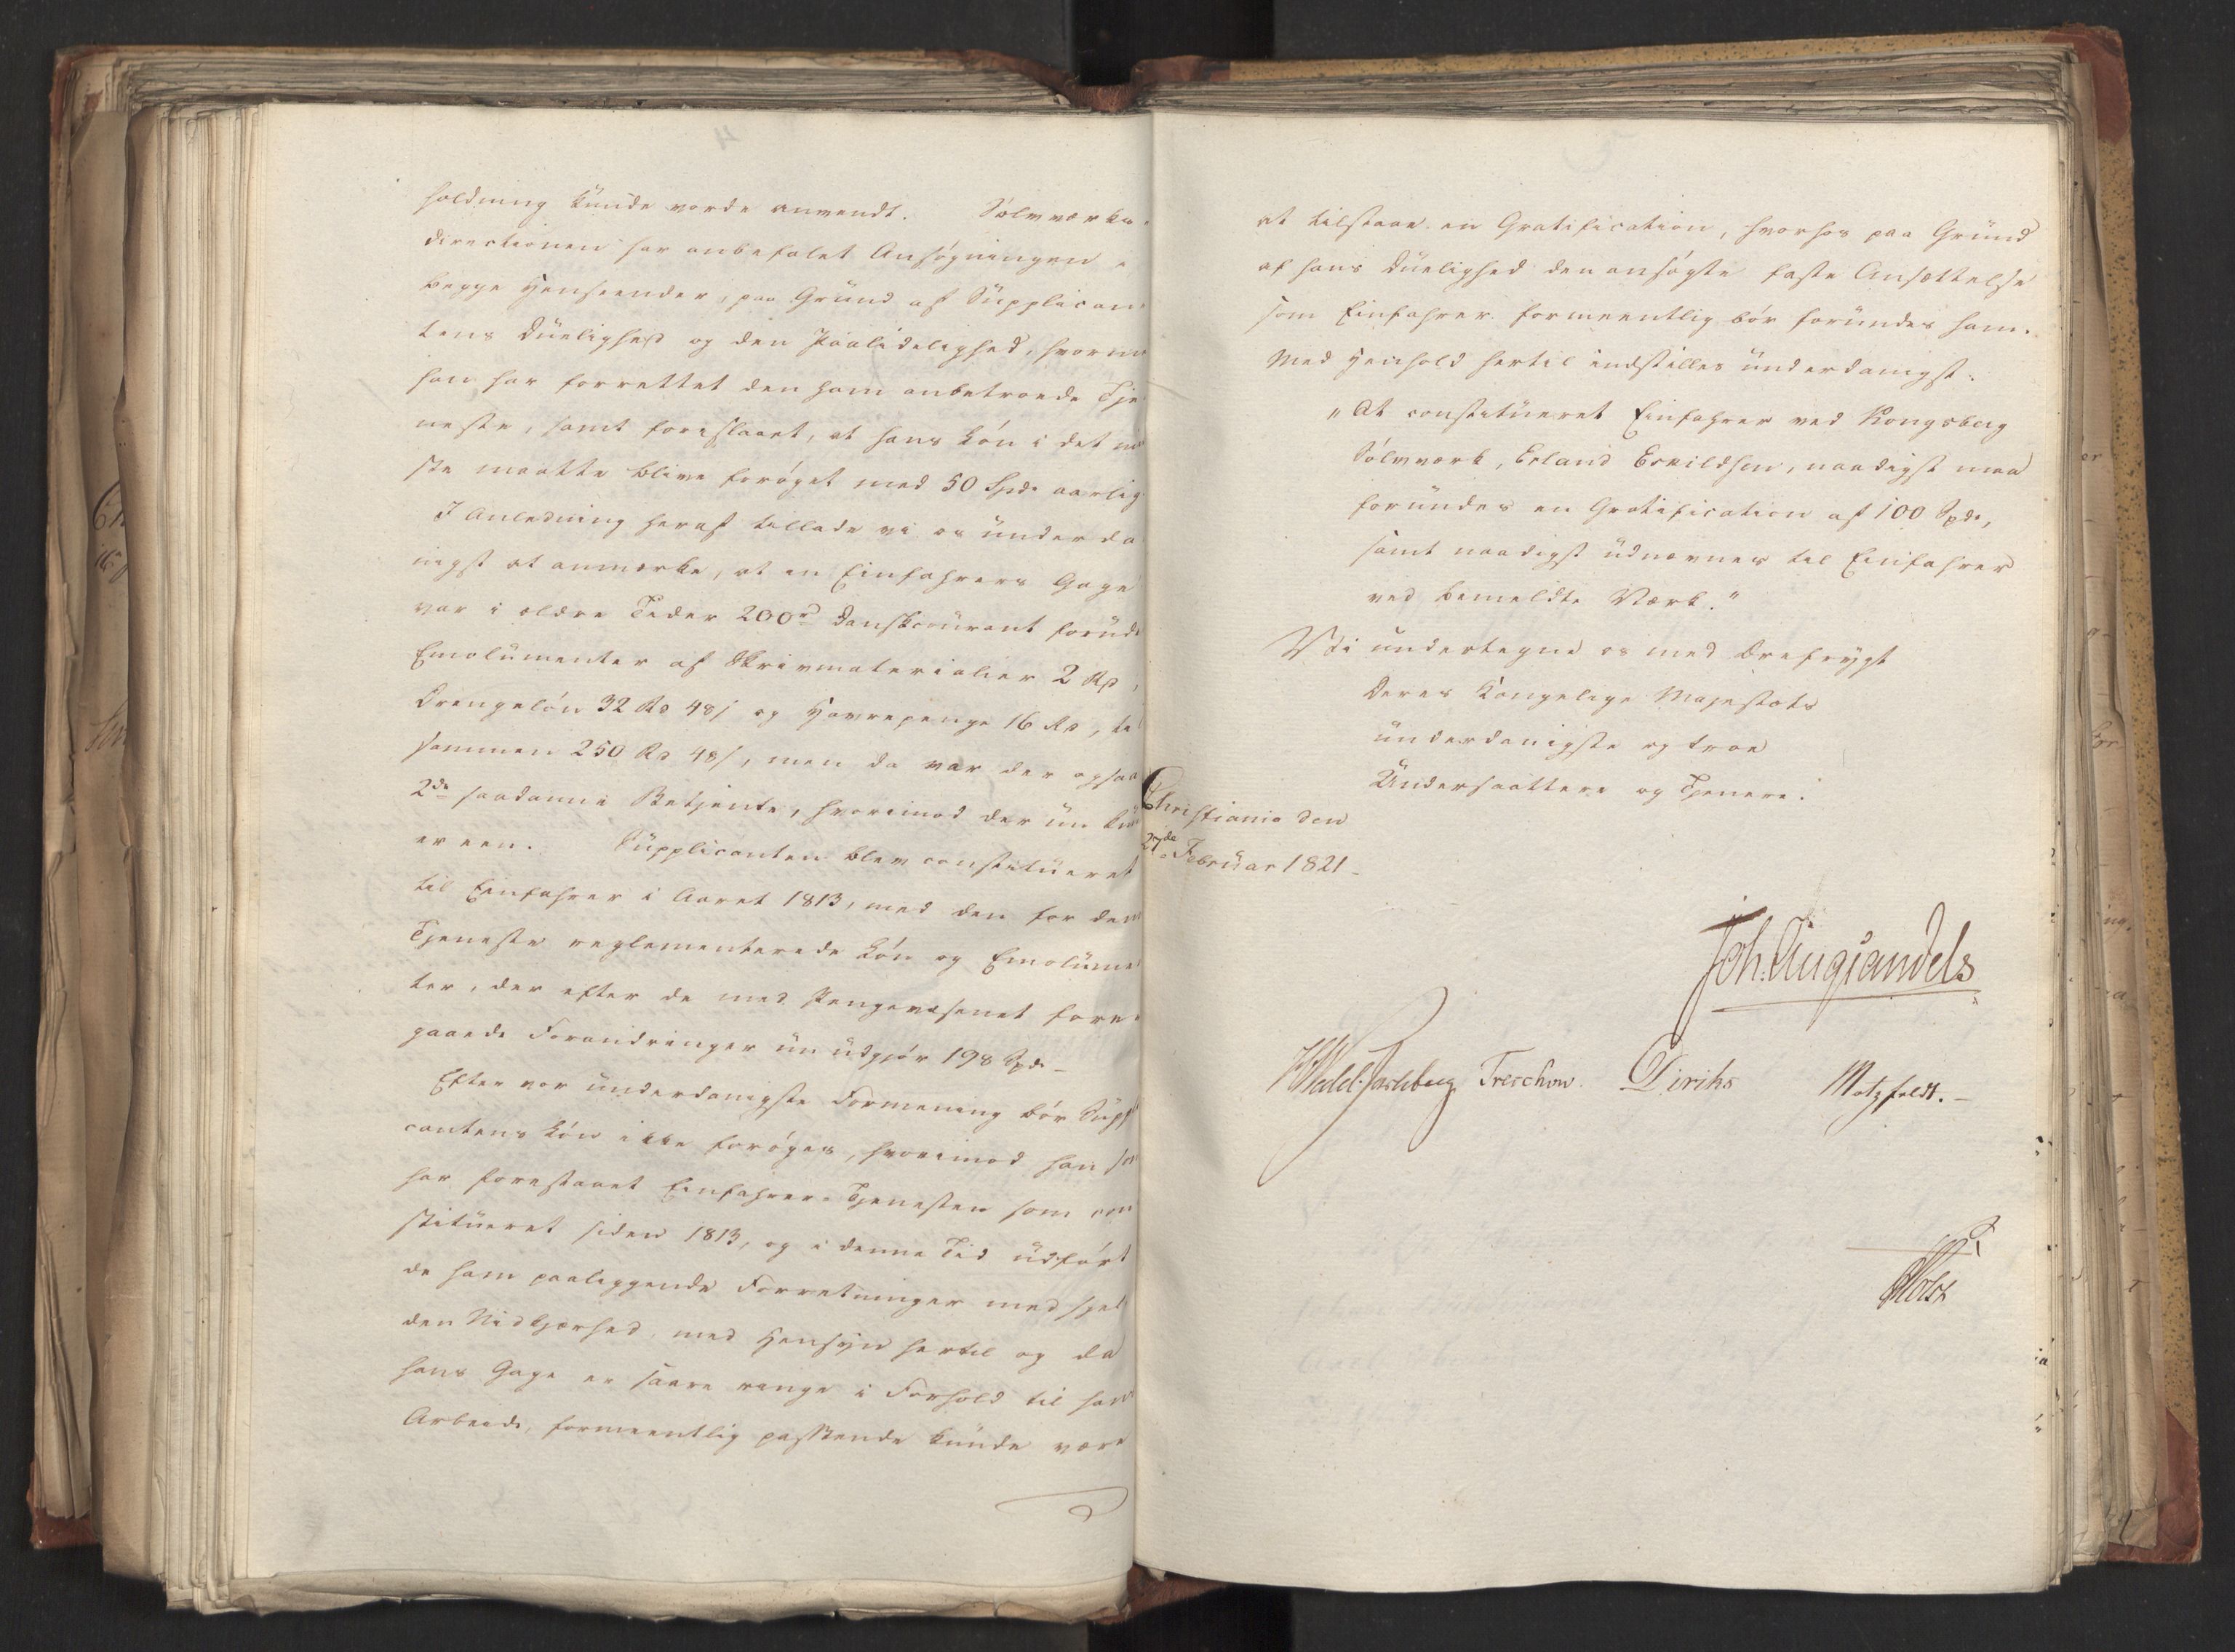 holdning kunde vorde anvendt. Sølvværks-
directionen har anbefalet Ansøgningen i
begge Henseender, paa Grund af Supplican-
tens Duelighed og den Paalidelighed, hvormed
han har forrettet den ham anbetroede Tje-
neste, samt foreslaaet, at hans Løn i det mind
ste maatte blive forøget med 50 Spd. aarlig.
I Anledning heraf tillade vi os underda
nigst at anmærke, at en Einfahrers Gage
var i ældre Tider 200rd dansk courant foruden
Emolumenter af Skrivmaterialier 2 Rd,
Drengeløn 32 Rd 48 s og Havrepenge 16 Rd, til
sammen 250 Rd 48 s, men da var der ogsaa
2de saadanne Betjente, hvorimod der nu kun
er een. Supplicanten blev constitueret
til Einfahrer i Aaret 1813, med den for den
Tjeneste reglementerede Løn og Emolumen
ter, der efter de med Pengevæsenet fore-
gaaede Forandringer nu udgjør 198 Spd. -
Efter vor underdanigste Formening bør Suppli
cantens Løn ikke forøges, hvorimod han som
har forestaaet Einfahrer-Tjenesten som con
stitueret siden 1813, og i denne Tid udført
de ham paaliggende Forretninger med sjel
den Nidkjærhed, med Hensyn hertil og da
hans Gage er saare ringe i Forhold til hans
Arbeide, formeentlig passende kunde være
at tilstaae en Gratification, hvorhos paa Grund
af hans Duelighed den ansøgte faste Ansættelse
som Einfahrer formeentlig bør forundes ham.
Med Henhold hertil indstilles underdanigst:
"At constitueret Einfahrer ved Kongsberg
Sølvværk, Erland Eskildsen, naadigst maa
forundes en Gratification af 100 Spd.,
samt naadigst udnævnes til Einfahrer
ved bemeldte Værk."
Vi undertegne os med Ærefrygt
Deres Kongelige Majestæts
underdanigste og troe
Undersaattere og Tjenere.
Christiania den
27de Februar 1821.
Joh. Aug Sandels
HWedel-Jarlsberg Treschow. Diriks Motzfeldt. -
Holst